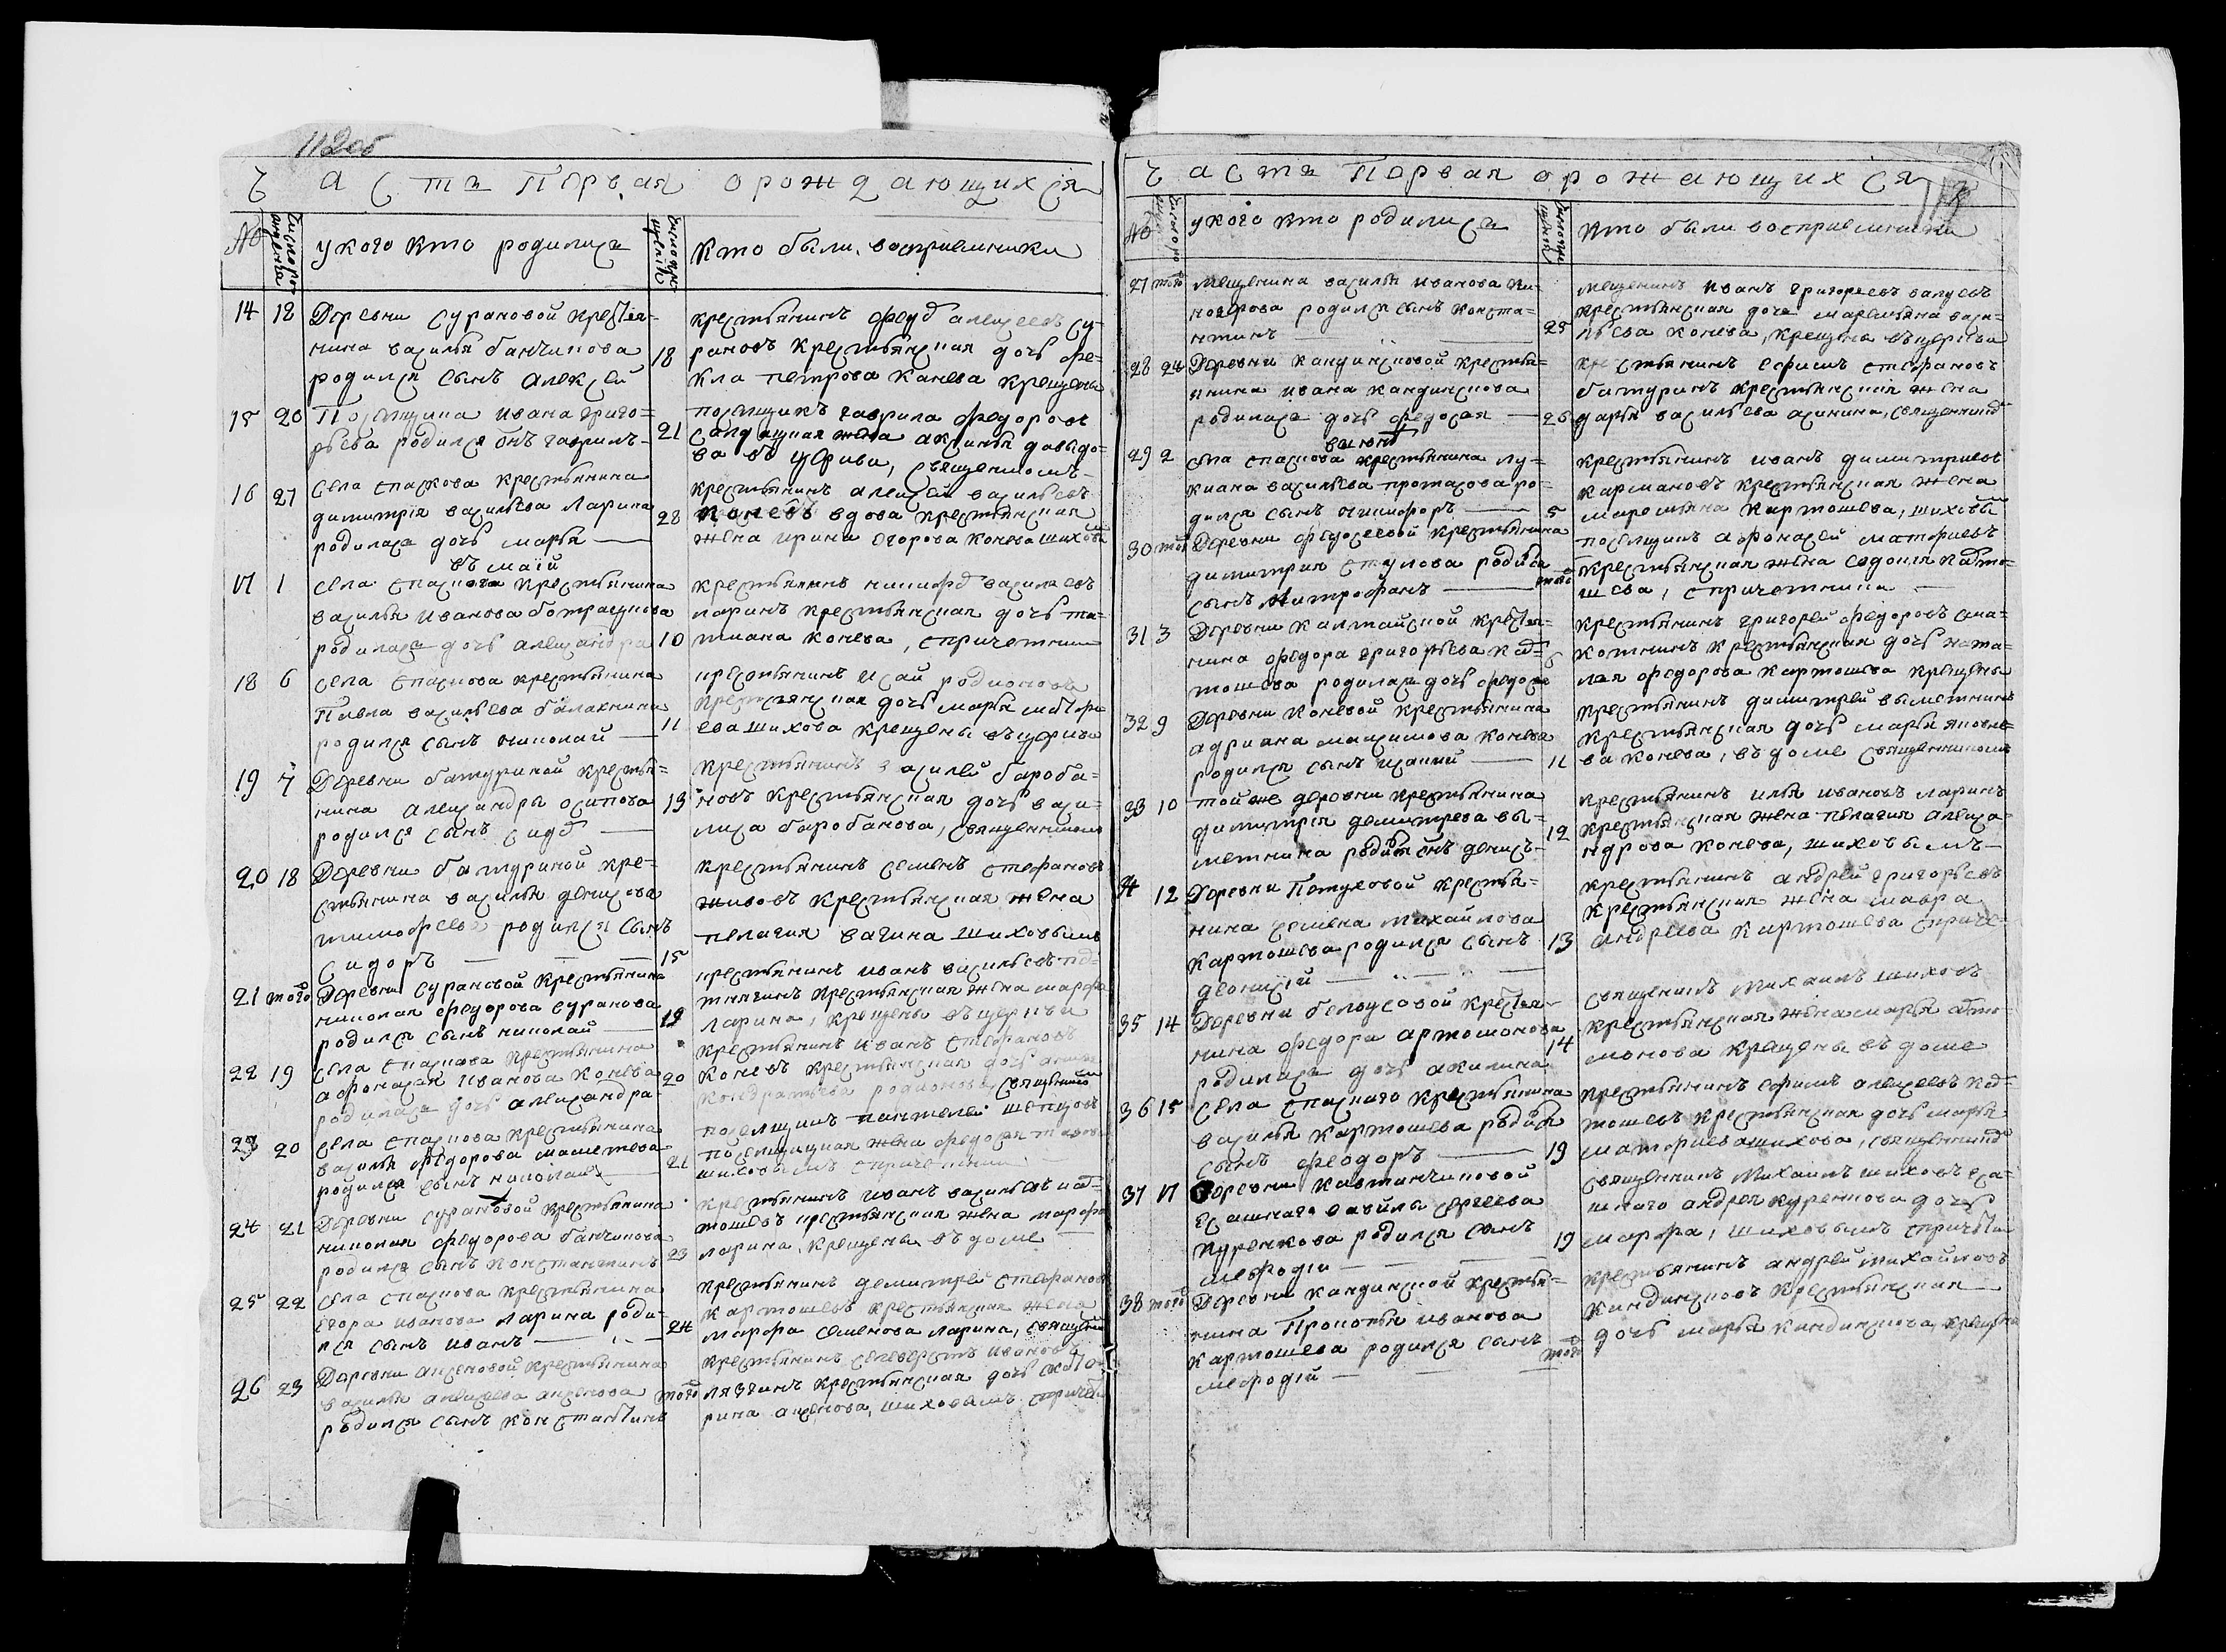 112об
Часть Первая о рождающихся
№
Число рождения
у кого кто родилися
Число крещенія
Кто были восприемники
14 18 Деревни Сурановой крестья-
нина василья банчикова
родился сынъ алексей
18
крестьянинъ феуд алексеевъ су-
рановъ крестьянская дочь фе-
кла петрова канева крещены
15 20 Поселщика ивана григо-
рьева родился снъ гаврилъ
21
поселщикъ гаврила федоровъ
салдацкая жена аксинья давыдо-
ва въ церкви, священникомъ
16 27 Села спаскова крестьянина
димитрія васильева Ларина
родилася дочь марья
28
крестьянинъ алексей васильевъ
Коневъ вдова крестьянская
жена ирина егорова конева шиховы
въ маій
17 1 села спаскова крестьянина
василья иванова ботрацкова
родилася дочь александра
10
крестьянинъ никифор василевъ
ларинъ крестьянская дочь та-
тиана конева, спричетники
18 6 села спаскова крестьянина
Павла васильева балакнина
родился сынъ николай
11
крестьянинъ исай родионовъ
крестьянская дочь марья матфи
ева шихова крещены въ церкви
19 7 Деревни батуриной крестья-
нина александры осипова
родился сынъ сидо
13
крестьянинъ василей бароба-
новъ крестьянская дочь васи-
лиса баробанова, священникомъ
20 18 Деревни батуриной кре-
стьянина василья денисова
тимофеева родился сынъ
Сидоръ
15
крестьянинъ семенъ стефановъ
шиховъ крестьянская жена
пелагия вагина шиховымъ
21 того Деревни сурановой крестьянина
николая федорова суранова
родился сынъ николай
19
крестьянинъ иванъ васильевъ
крестьянская жена марфа
ларина, крещены въ церкви
22 19 села спаскова крестьянина
афонасая иванова конева
родилася дочь александра
20
крестьянинъ иванъ стефановъ
коневъ крестьянская дочь
кондратьева родионова, священник
23 20 села спаскова крестьянина
василья федорова машетева
родился сынъ николай
21
поселщикъ пантелей шепцовъ
поселщицкая жена федосья
шиховымъ спричетники
24 21 Деревни сурановой крестьянина
николая федорова банчикова
родился сынъ константинъ
23
крестьянинъ иванъ васильевъ кар-
тошевъ крестьянская жена марфа
ларина, крещены въ доме
25 22 села спаскова крестьянина
Егора иванова ларина роди-
лся сынъ иванъ
24
крестьянинъ демитрей стефановъ
картошевъ крестьянская жена
марфа семенова ларина, священн
26 23 Деревни аксеновой крестьянина
василья алексева аксенова
родился сынъ константинъ
того
крестьянинъ селеверстъ ивановъ
лязгинъ крестьянская дочь кате-
рина аксенова, шиховымъ спричет
Часть Первая о рожающихся
№
у кого кто родилися
Кто были восприемники
27 того мещенина василья иванова ки-
ноерова родился сынъ конста-
нтинъ
25
мещенинъ иванъ григорьевъ валуевъ
крестьянская дочь маремьяна васи-
льева конева, крещены въ церкви
28 24 Деревни кандинсковой крестья-
янина ивана кандинскова
родилася дочь федосая
26
крестьянинъ ефимъ стефановъ
батуринъ крестьянская жена
дарья васильева аринина, священник
в июне
29 2 села спаскова крестьянина лу-
киана васильева протасова ро-
дился сынъ никифоръ
5
крестьянинъ иванъ димитриевъ
кармановъ крестьянская жена
маремьяна картошева, шиховы
30 того Деревни федосеевой крестьянина
димитрия стукова родился
сынъ Митрофанъ
того
поселщикъ афонасей матфиевъ
крестьянская жена евдокия карто-
шева, спричетники
31 3 Деревни калтайской крестья-
нина федора григорьева кар-
тошева родилася дочь федосья
6
крестьянинъ григорей федоровъ сма-
котнинъ крестьянская дочь ната-
лая федорова картошева крещены
32 9 Деревни Коневой крестьянина
адриана максимова конева
родился сынъ исакий
11
крестьянинъ димитрей выметнинъ
крестьянская дочь марья яковле-
ва конева, въ доме священникомъ
33 10 той же деревни крестьянина
димитрія демитрева вы-
метнина родился снъ денисъ
12
крестьянинъ илья ивановъ ларинъ
крестьянская жена пелагия алекса-
ндрова конева, шиховымъ
34 12 Деревни Петуховой крестья-
нина семена михайлова
картошева родился сынъ
деонисій
13
крестьянинъ андрей григорьевъ
крестьянская жена мавра
андреева картошева спричe-
35 14 Деревни белоусовой крестья-
нина федора артомонова
родилася дочь акилина
14
священникъ михаилъ шиховъ
крестьянская жена марья арто-
монова крещены въ доме
36 15 села спаского крестьянина
василья картошева родился
сынъ феодоръ
19
крестьянинъ ефимъ алексеевъ кар-
тошевъ крестьянская дочь марья
матфиева шихова, священникъ
37 17 Деревни калтанчиковой
есашнаго гаврилы сергеева
куренкова родился сынъ
мефодіи
19
священникъ михаилъ шиховъ еса-
шного андрея куренкова дочь
марфа, шиховымъ спричeтн
38 того Деревни кандинской крестья-
нина Прокопья иванова
картошева родился сынъ
мефодій
того
крестьянинъ андрей михайловъ
кандинсковъ крестьянская
дочь марья кандинскова, крещены